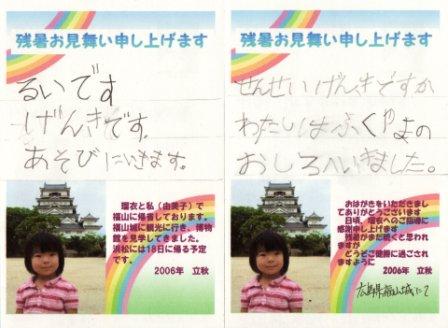 残暑お見舞い申し上げます
るいです
げんきです。
あそびにいきます。
瑠衣と私(由美子)で
福山に帰省しております。
福山城に観光に行き、博物
館を見学してきました。
浜松には18日に帰る予定
です。
2006年 立秋
残暑お見舞い申し上げます
せんせいげんきですか
わたしはふくやまの
おしろへいきました。
おはがきをいただきまし
てありがとうございます
日頃、瑠衣へのご指導に
感謝申し上げます
残暑がまだ続くと思われ
ますが
どうぞご健勝に過ごされ
ますように
2006年 立秋
広島県福山城にて